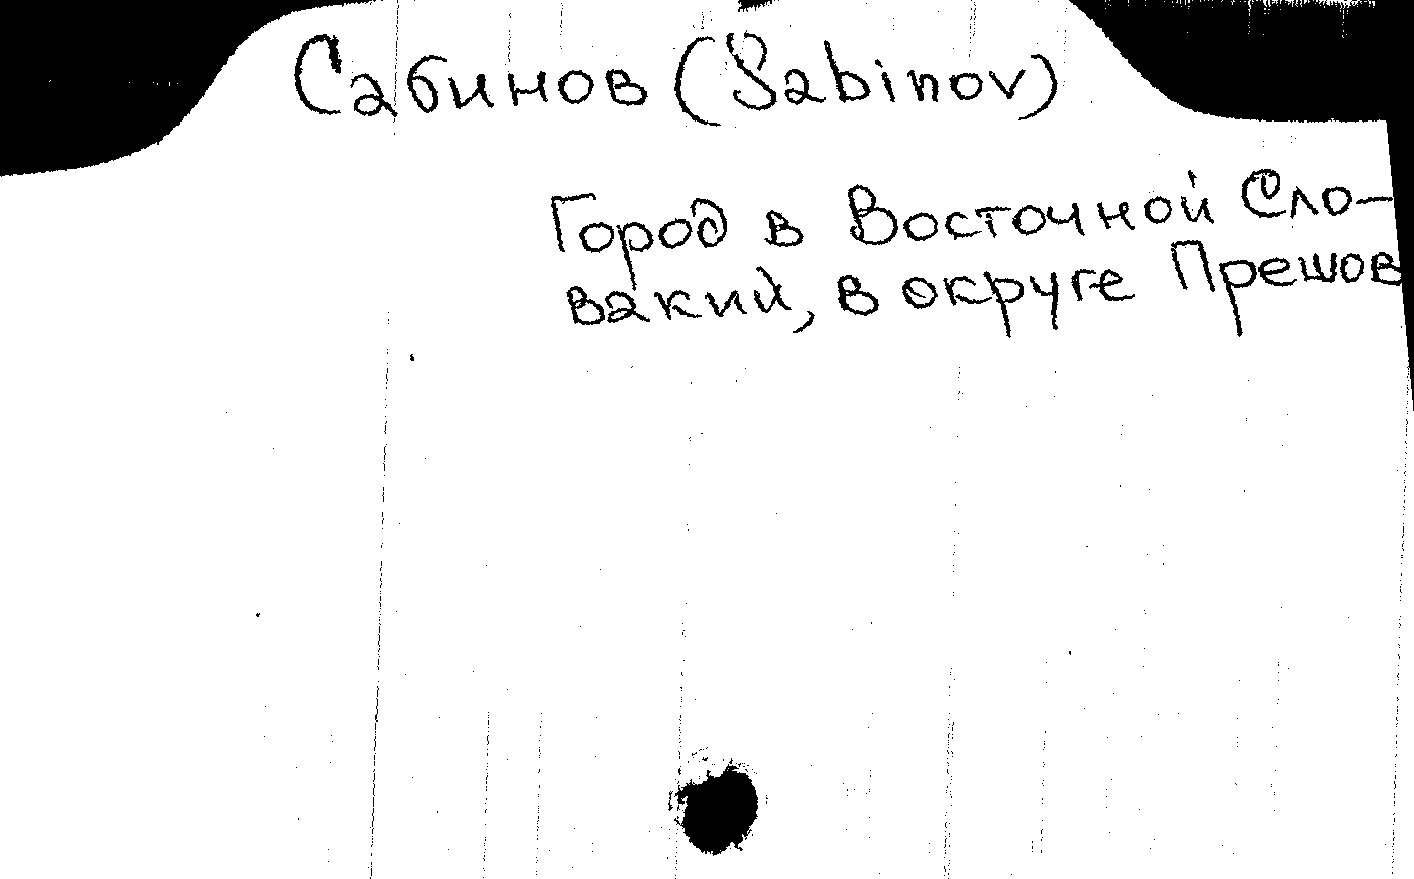 Сабинов (Sabinov)
Город в Восточной Сло-
вакии, в округе Прешов